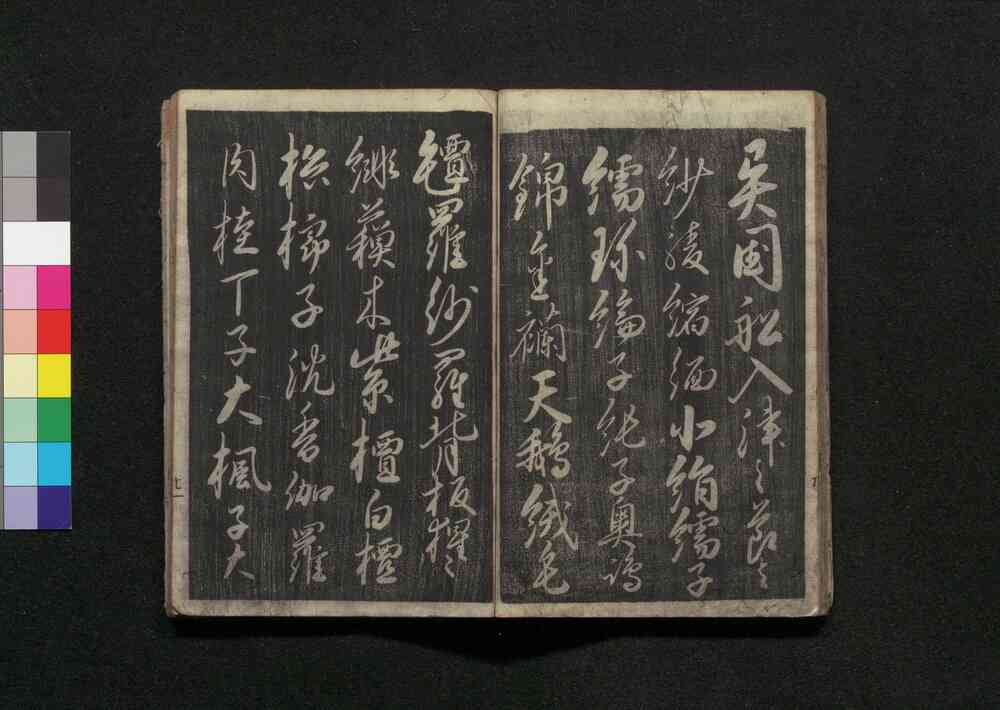 呉国船入津之節之
紗綾縮緬小絹繻子
繻珎綸子純子奥嶋
錦金襴天鵝絨毛
氈羅紗羅背板猩々
緋蘇木紫檀白檀
梹榔子沈香伽羅
肉桂丁子大楓子大